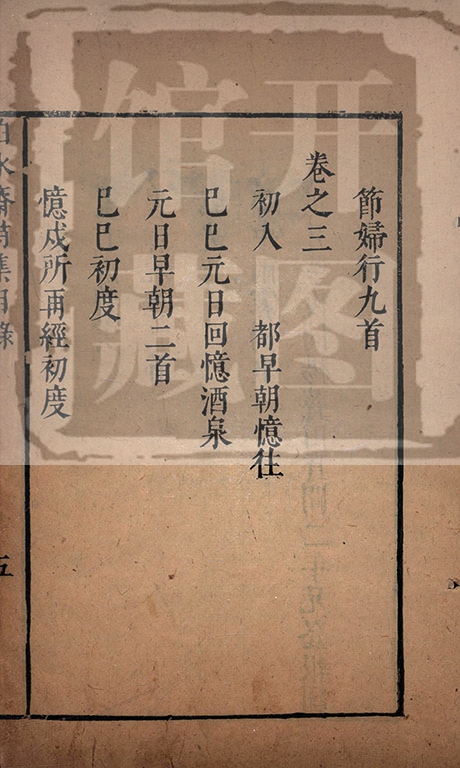 節婦行九首
卷之三
初入　都早朝憶往
巳巳元日回憶酒泉
元日早朝二首
巳巳初度
憶戍所再經初度
白水齋詩集目錄
五
开图
馆藏